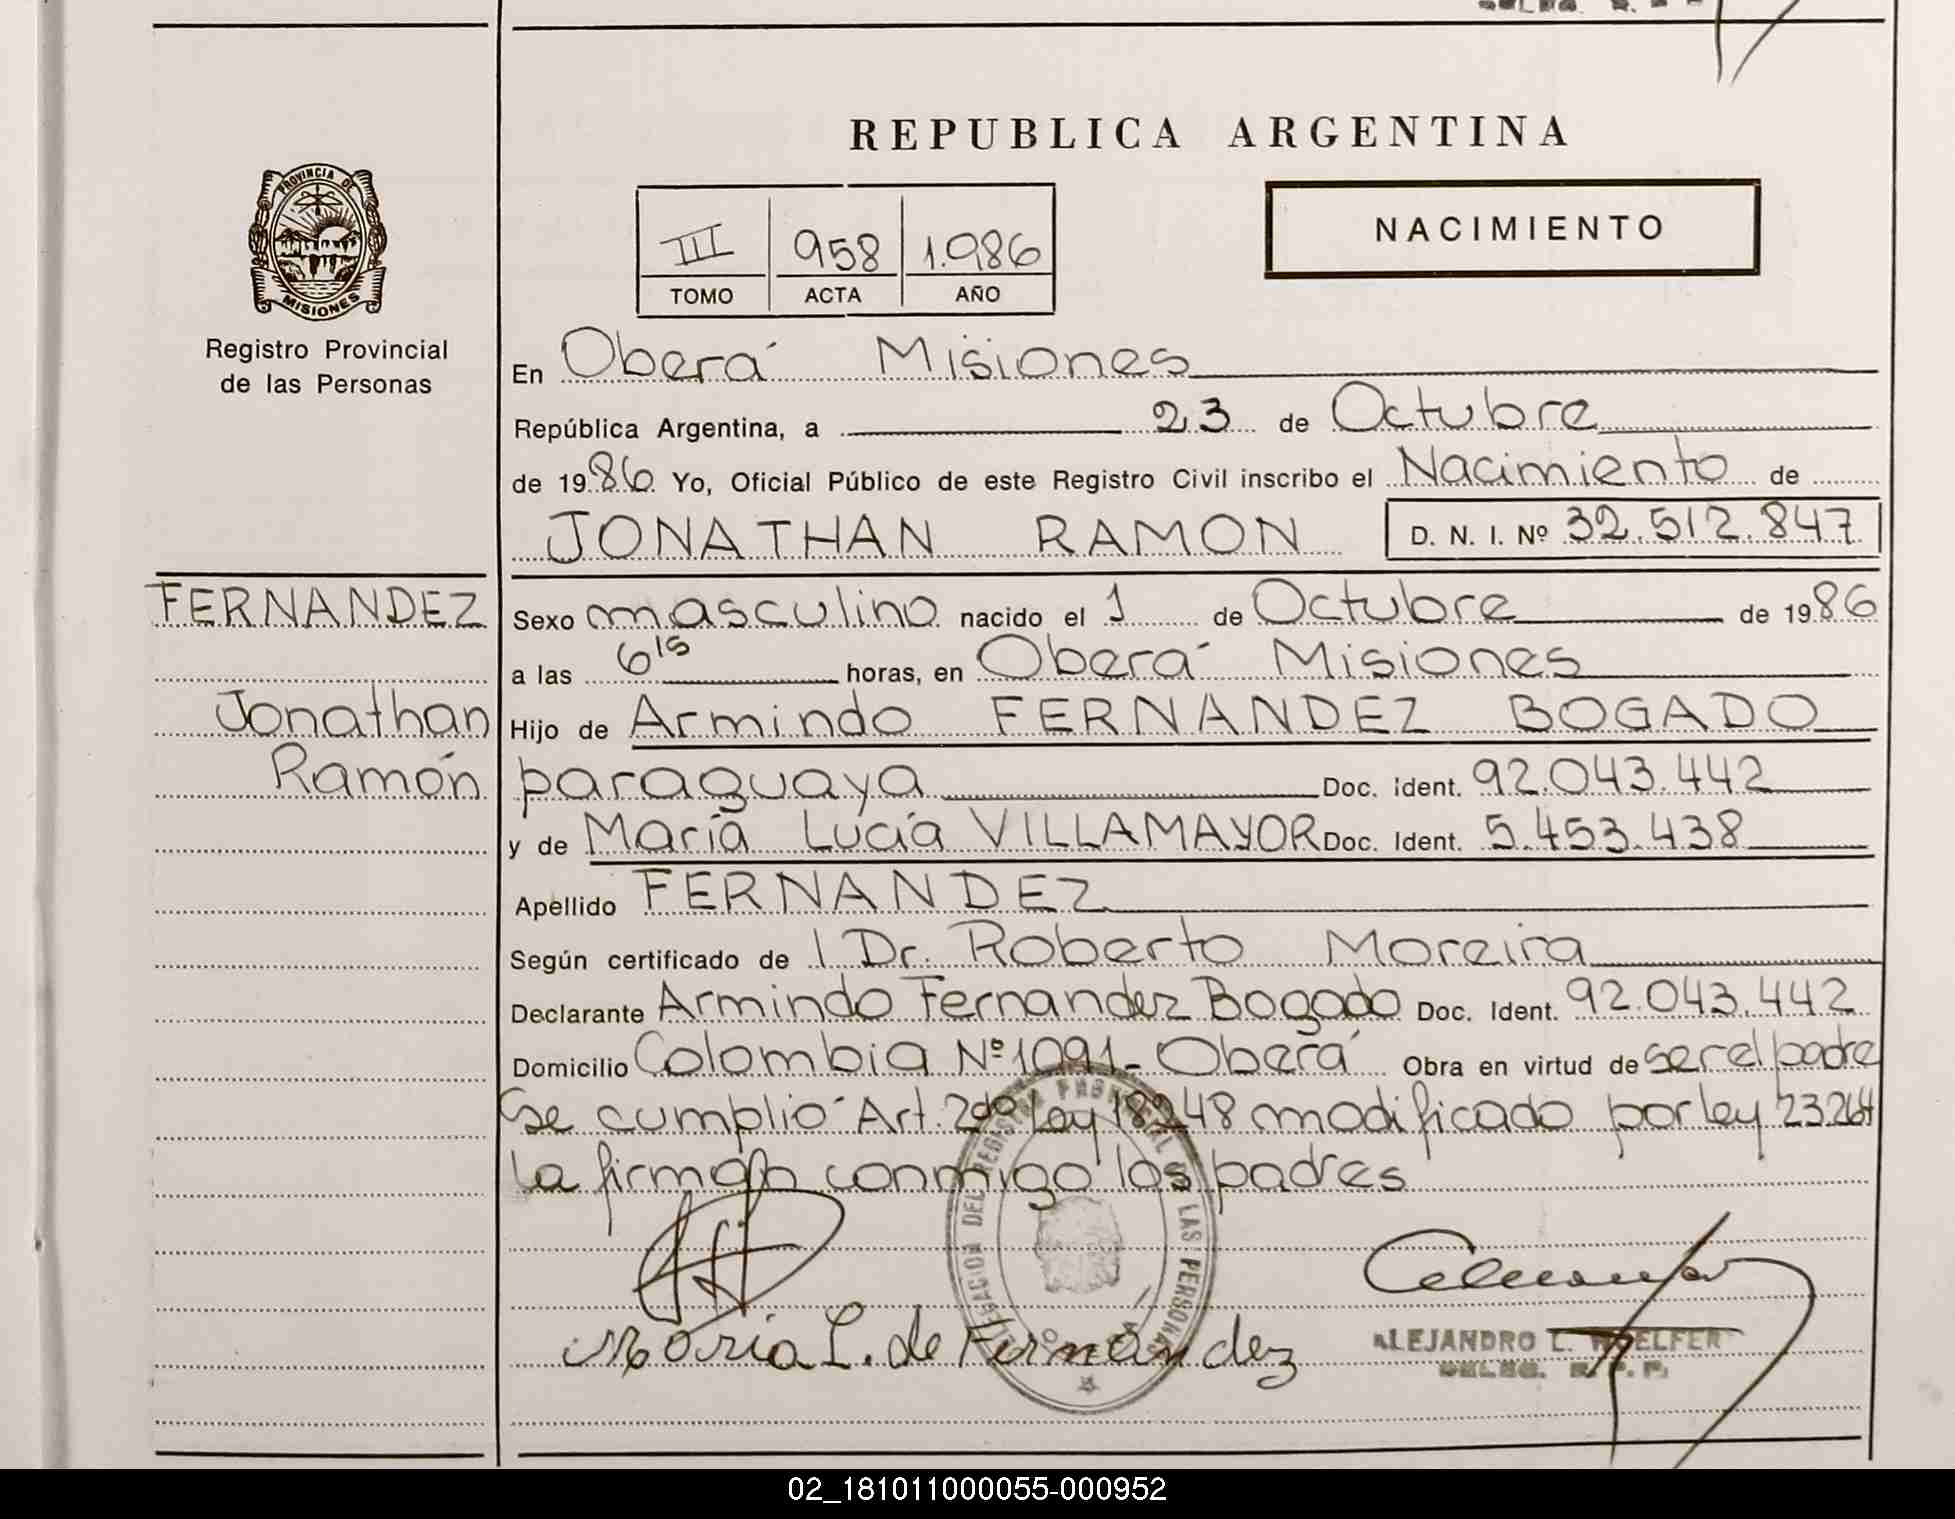 REPUBLICA ARGENTINA
PROVINCIA DE
MISIONES
Registro Provincial
de las Personas
III 958 1.986
TOMO ACTA AÑO
NACIMIENTO
En Oberá Misiones
República Argentina, a 23 de Octubre
de 1986 Yo, Oficial Público de este Registro Civil inscribo el Nacimiento de
JONATHAN RAMON D. N. I. Nº 32.512.847
FERNANDEZ
Jonathan
Ramón
Sexo masculino nacido el 1 de Octubre de 1986
a las 6 15 horas, en Oberá Misiones
Hijo de Armindo FERNANDEZ BOGADO
paraguaya Doc. Ident. 92.043.442
y de María Lucía VILLAMAYOR Doc. Ident. 5.453.438
Apellido FERNANDEZ
Según certificado de l Dr. Roberto Moreira
Declarante Armindo Fernandez Bogado Doc. Ident. 92.043.442
Domicilio Colombia Nº 1091- Oberá Obra en virtud de ser el padre
Se cumplió Art. 2do Ley 18248 modificado por ley 23.264
La firman conmigo los padres
DELEGACION DEL REGISTRO PROVINCIAL DE LAS PERSONAS
María L. de Fernández
ALEJANDRO L. WOELFER
DELEG. R. P. P.
02_181011000055-000952